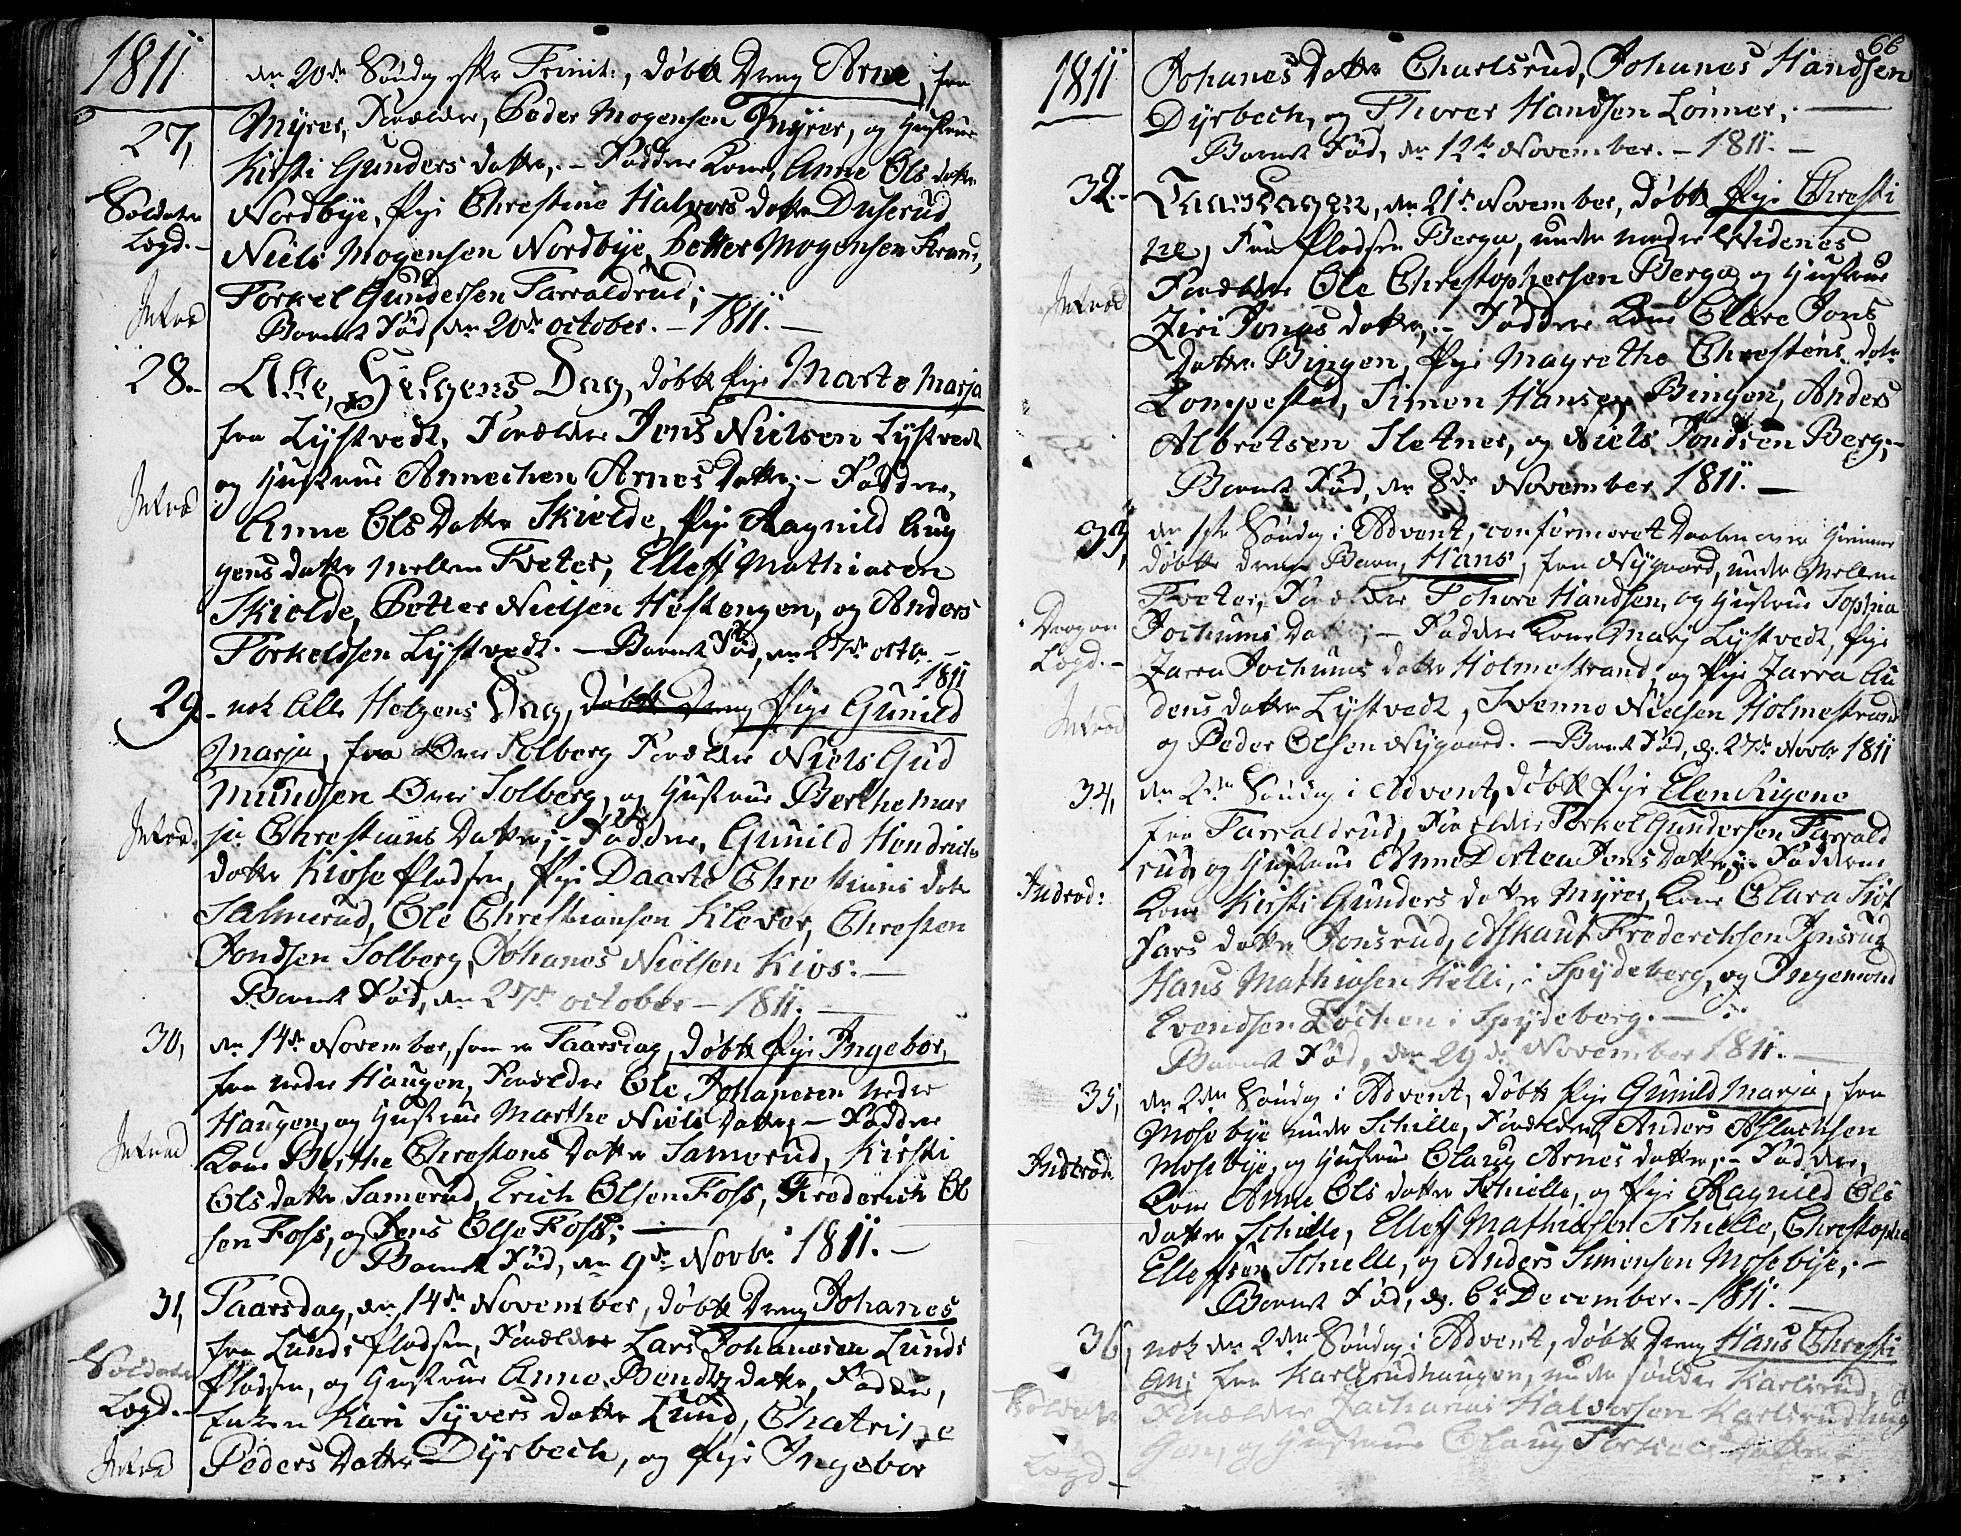 1811
den 20de Søndag efter Trinit:, døbt Dreng Arne, fra
27, Myrer, Forældre, Peder Mogensen Myrer, og Hustrue
Kirsti Gunders datter, – Faddre Kone Anne Ols datter
Soldater Lægd. – Nordbye, Pige Christine Halvors datter Duserud
Niels Mogensen Nordbye, Petter Mogensen
Torkel Gundersen Tarraldrud;
Intrød
Barnet Fød, den 20de october. – 1811. –
28. – Alle Helgens Dag, døbt Pige Marte Marja
fra Lystvedt, Forældre Jens Nielsen Lystvedt
og Hustrue Annechen Arnes Datter; – Faddre,
Intrød
Anne Ols Datter Skielde, Pige Ragnild Aug
gens datter Mellem Treter, Elleff Mathiasen
Skielde, Petter Nielsen Hestengen, og Anders
Torkeldsen Lystvedt. – Barnet Fød, den 27de octbr. –
1811
29. – nok Alle Helgens Dag, døbt Dreng Pige Gunild
Marja, fra Over Solberg Forældre Niels Gud
mundsen Over Solberg, og Hustrue Berthe Mar
Intrød
ja Christians Datter; – Faddre, Gunild Hendrichs
datter Kiose Pladsen, Pige Daarte Christians datr
Salmerud, Ole Christiansen Klever, Christen
Jondsen Solberg, Johanes Nielsen Kios: –
Barnet Fød, den 27de october – 1811. –
30, den 14de November, som er Taarsdag, døbt Pige Ingebor,
fra nedre Haugen, Forældre Ole Johanesen nedre
Haugen, og Hustrue Marthe Niels Datter, – Faddre
Intrød
Kone Berthe Christens Datter Samerud, Kirsti
Ols datter Samerud, Erich Olsen Foss, Frederich Ol
sen Foss, og Jens Olse Foss; –
Barnet Fød, den 9de Novbr 1811. –
31, Taarsdag, den 14de November, døbt Dreng Johanes
fra Lunds Pladsen, Forældre Lars Johanesen Lunds
Soldater Lægd. – Pladsen, og Hustrue Anne Bendts datter, Faddre,
Enken Kari Syvers datter Lund, Chatrine
Intrød
Peders Datter Dyrbech, og Pige Ingebor
66
1811
Johanes Datter Charlsrud, Johanes Handsen
Dyrbech, og Thorer Handsen Lønner, –
Barnet Fød, den 12te November. – 1811. –
32. – Taarsdagen, den 21de November, døbt Pige Christi
ne, Fra Pladsen Berga, under nedre Widenes
Intrød
Forældre Ole Christophersen Berga og Hustrue
Siri Jonas datter; – Faddre Kone Clare Jons
Datter Bingen, Pige Magrethe Christens datr
Lompestad, Simen Hansen Bingen, Anders
Albretsen Sletner, og Niels Jondsen Berg, –
Barnet Fød, den 8de November 1811. –
33, den 1ste Søndag i Advent, conformeret Daaben over hiemme
døbte Drenge Barn, Hans, fra Nygaard, under Mellem
Treter, Forældre Tohore Handsen, og Hustrue Sophia
Dragon Lægd. – Jochums Datter, – Faddre Kone Marj Lystvedt, Pige
Sarra Jochums datter Holmestrand, og Pige Sarra Au
Intrød
dens datter Lystvedt, Svenno Nielsen Holmestrand
og Peder Olsen Nygaard. – Barnet Fød, d. 27de Novbr 1811
34, den 2den Søndag i Advent, døbt Pige Elen Rigene
fra Tarraldrud, Forældre Torkel Gundersen Tarrald
rud, og Hustrue Anne Dortea Jens datter; – Faddrene
Indrød: Kone Kirsti Gunders datter Myrer, Kone Clara
datter Jonsrud, Askaut Frederichsen Jonsrud
Hans Mathiasen Helli, i Spydeberg, og Ingemond
Evendsen Løchen i Spydeberg. –
Barnet Fød, den 29de November 1811. –
35, den 2den Søndag i Advent, døbt Pige Gunild Marja, fra
Mosebye under Schille, Forældre Anders Aslachsen
Indtrød. Mosebye, og Hustrue Olaug Arnes datter, – Faddre,
Kone Anne Ols datter Schielle, og Pige Ragnild Ols
datter Schielle, Elleff Mathiasen Schielle, Christopher
Elleffsen Schielle, og Anders Simensen Mosebye, –
Barnet Fød, d. 6te December. – 1811. –
36, nok den 2den Søndag i Advent, døbt Dreng Hans Christi
an; fra Karlsrudhaugen, under søndre Karlsrud,
Soldater Forældre Zacharias Halvorsen Karlsrudhaug
Lægd
og Hustrue Olaug